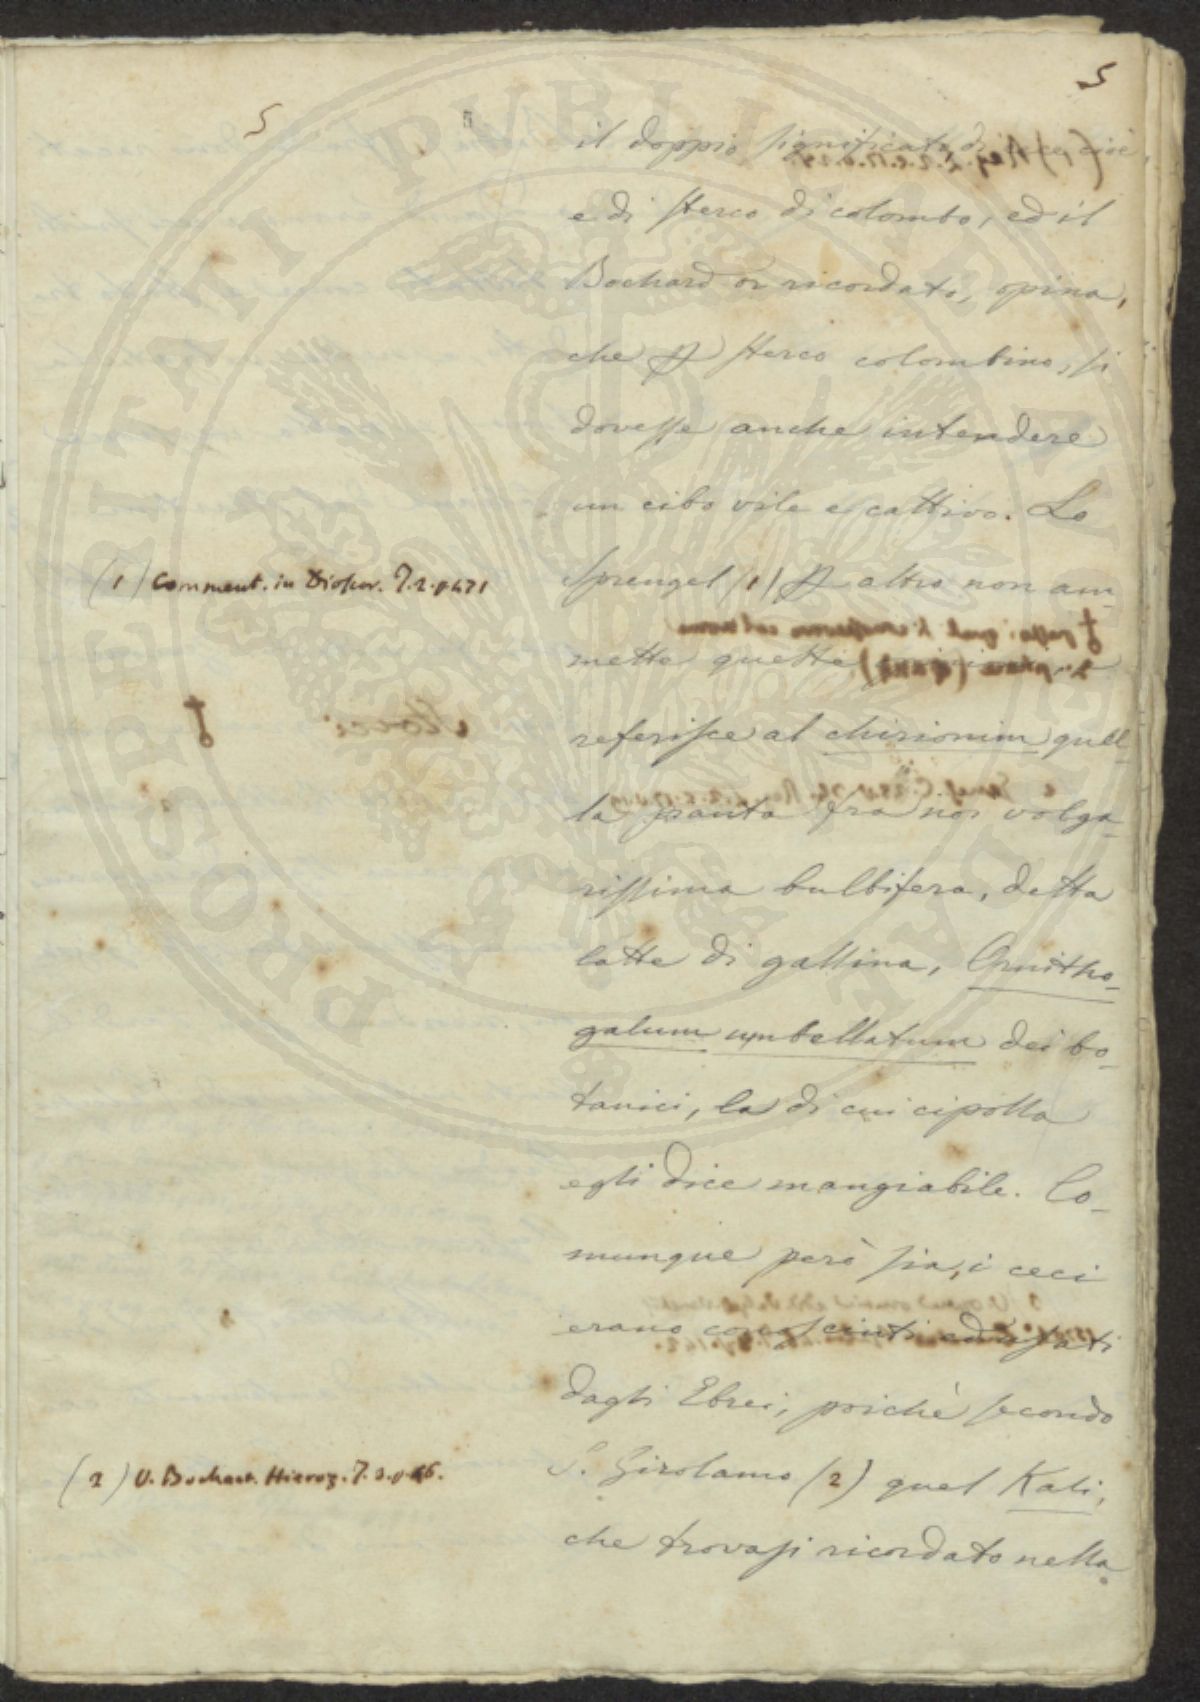 5
5
il doppio significato di cece, cioè,
e di sterco di colombo, ed il
Bochard or ricordato, opina,
che p sterco colombino, si
dovesse anche intendere
un cibo vile e cattivo. Lo
Sprengel (1) p altro non am-
mette queste
referisce al chirionim quel-
la pianta fra noi volga-
rissima bulbifera, detta
latte di gallina, Ornitho-
galum umbellatum dei bo-
tanici, la di cui cipolla
egli dice mangiabile. Co-
munque però sia, i ceci
erano conosciuti ed usati
dagli Ebrei, poichè secondo
S. Girolamo (2) quel Kali,
che trovasi ricordato nella
(1) Comment. in Dioscor. T. 2. p 471
(2) V. Bochart. Hieroz. T. 2. p 46.
PROSPERITATI PVBLICAE AVGENDAE